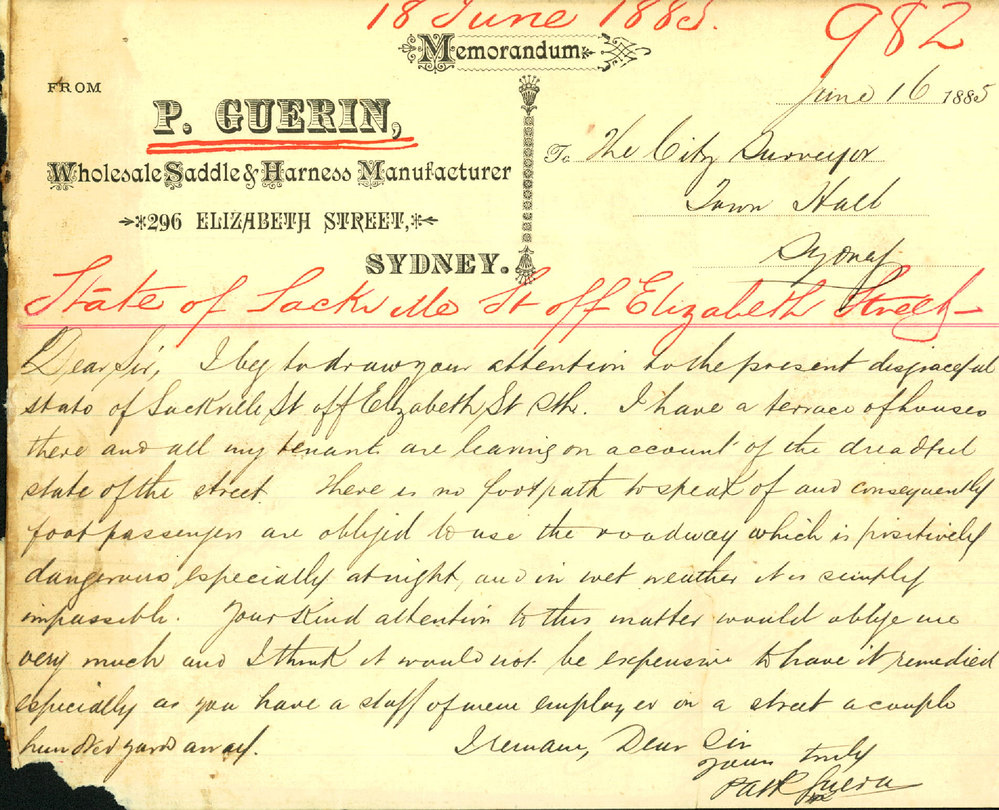 18 June 1885.
982
Memorandum
FROM
June 16 1885
P. GUERIN,
To The City Surveyor
Wholesale Saddle & Harness Manufacturer
Town Hall
296 ELIZABETH STREET,
Sydney
SYDNEY.
State of Sackville St off Elizabeth Street
Dear Sir, I beg to draw your attention to the present disgraceful
state of Sackville St off Elizabeth St Sth. I have a terrace of houses
there and all my tenants are leaving on account of the dreadful
state of the street. There is no footpath to speak of and consequently
foot passengers are obliged to use the roadway which is positively
dangerous especially at night, and in wet weather it is simply
impassible. Your kind attention to this matter would oblige me
very much and I think it would not be expensive to have it remedied
especially as you have a staff of men employed on a street a couple
hundred yards away. I remain, Dear Sir
Yours truly
Patk Guerin